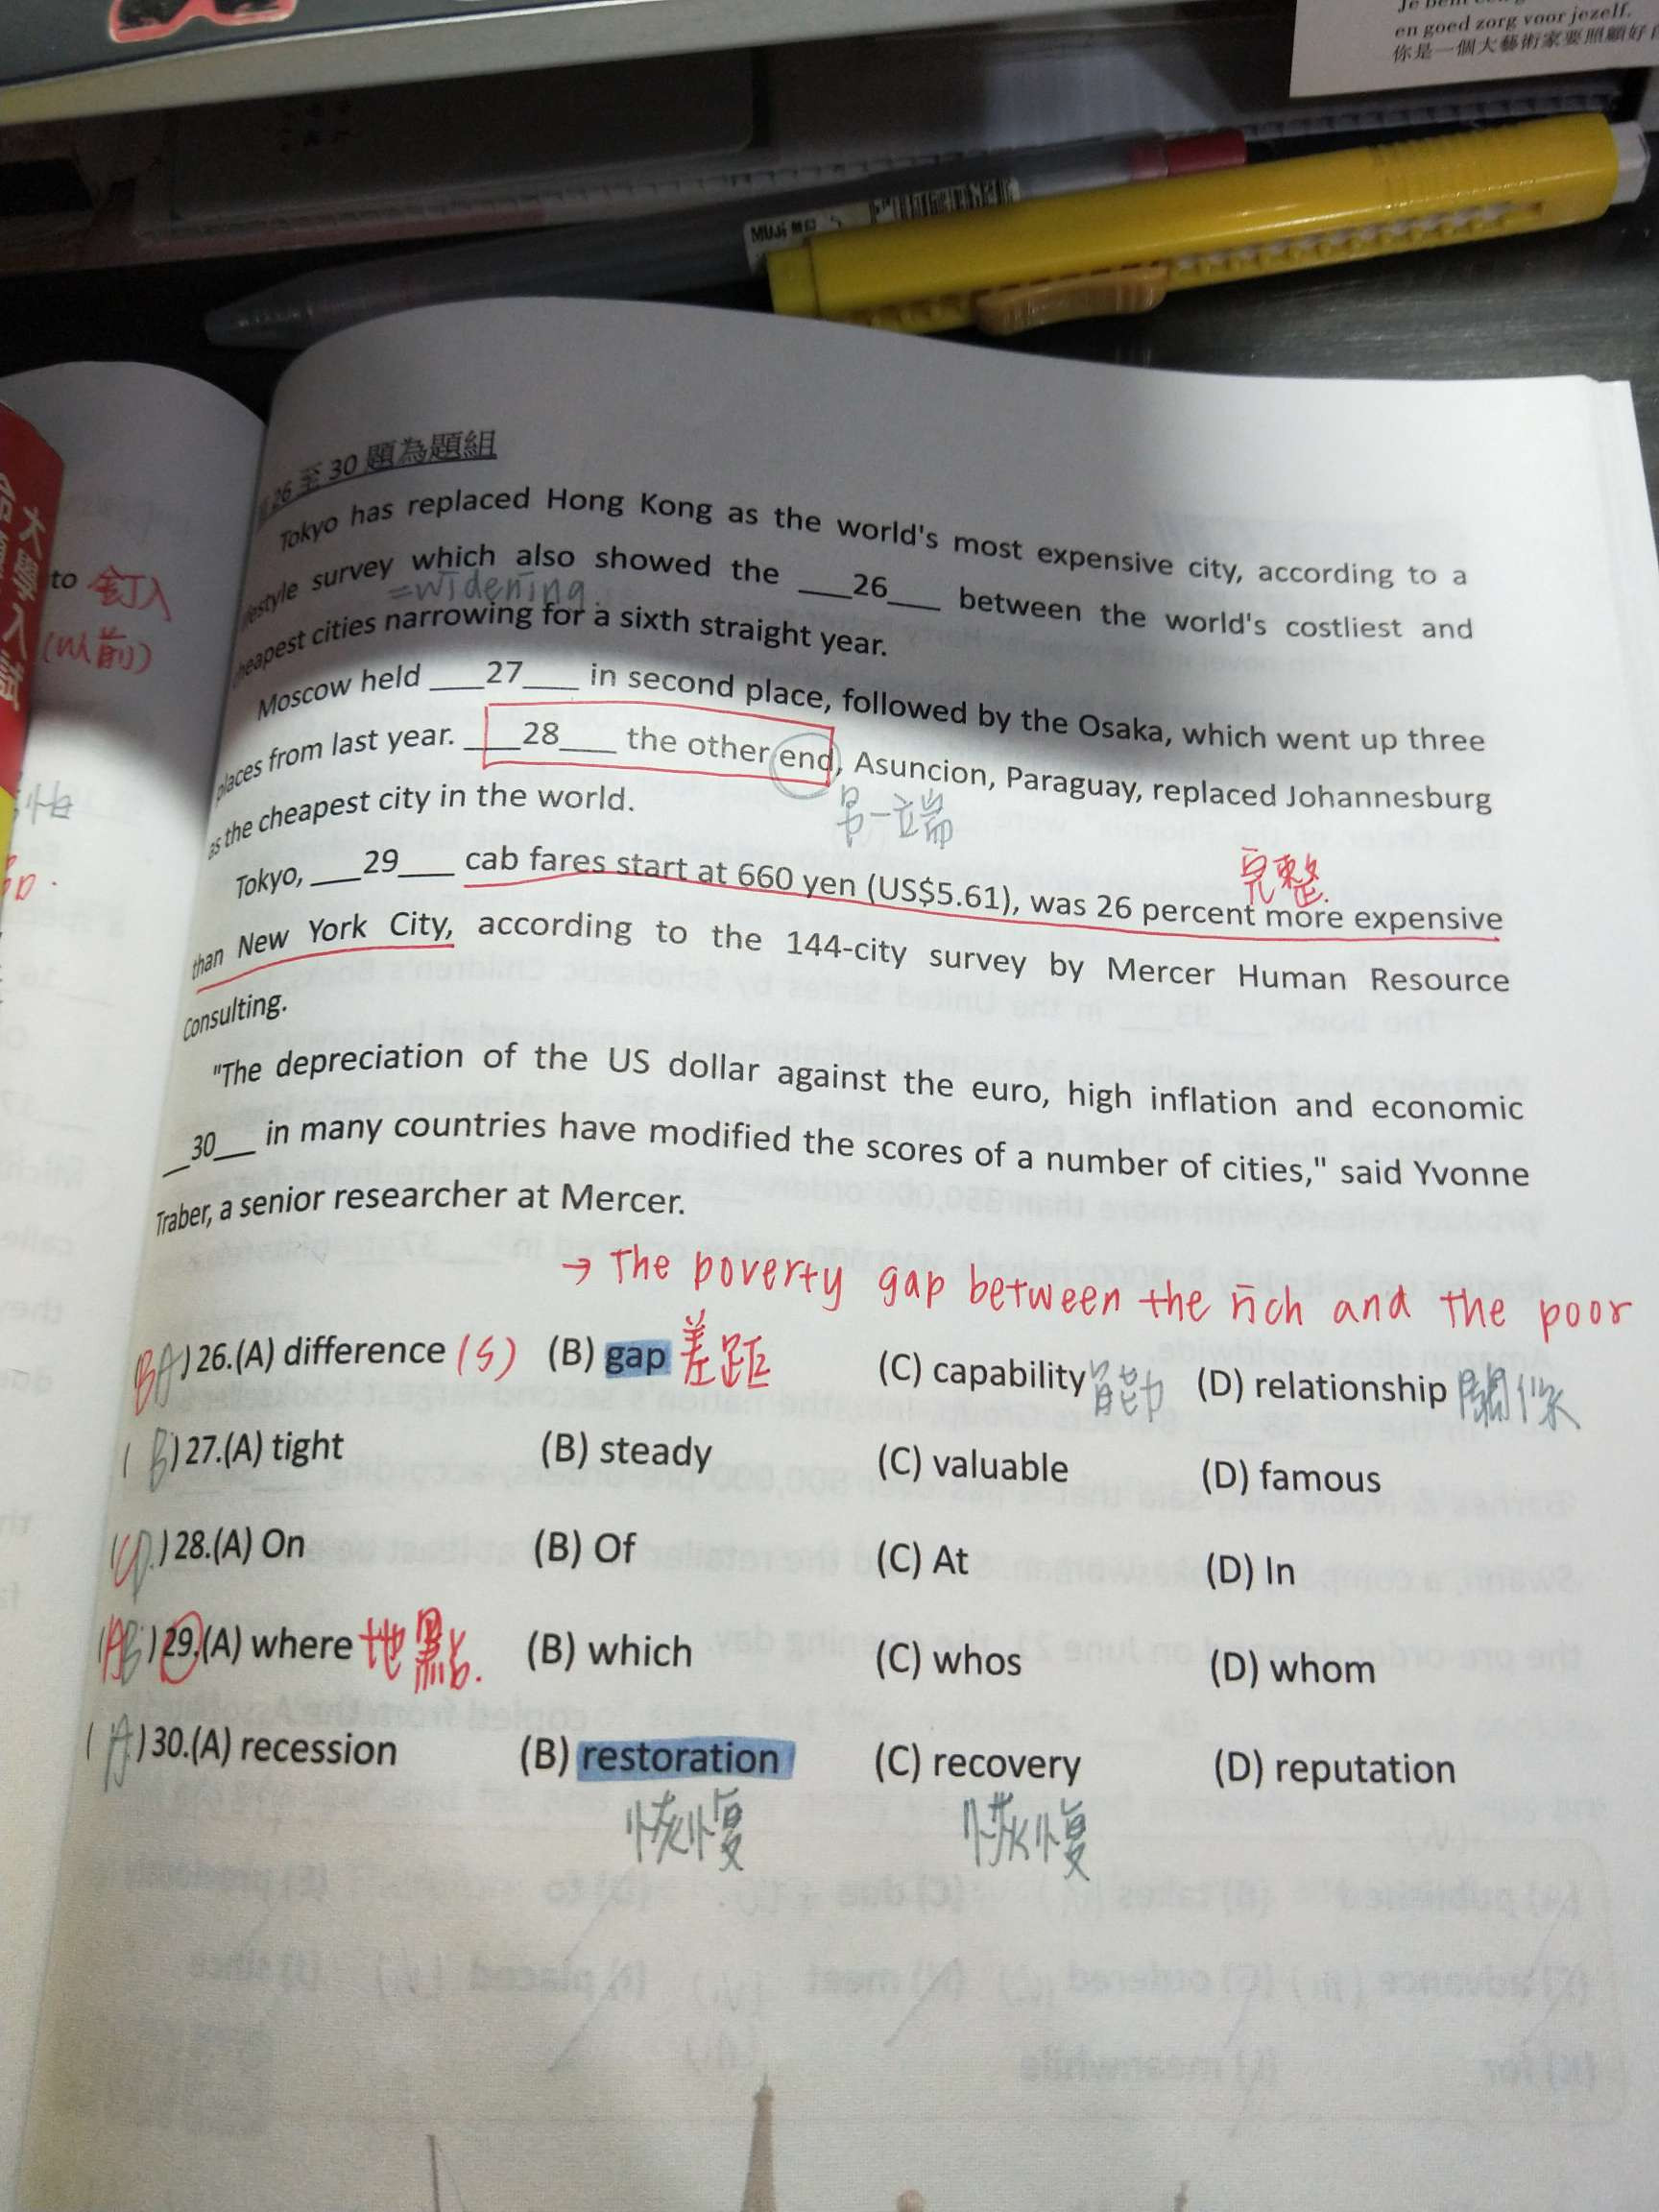 en goed zorg voor jezelf.
你是一個大藝術家要照顧好
MUJI
to 釘入
(以前)
26 至 30 題為題組
Tokyo has replaced Hong Kong as the world's most expensive city, according to a
lifestyle survey which also showed the ___26___ between the world's costliest and
=widening
cheapest cities narrowing for a sixth straight year.
Moscow held ___27___ in second place, followed by the Osaka, which went up three
places from last year. ___28___ the other end, Asuncion, Paraguay, replaced Johannesburg
as the cheapest city in the world.
另一端
完整
Tokyo, ___29___ cab fares start at 660 yen (US$5.61), was 26 percent more expensive
than New York City, according to the 144-city survey by Mercer Human Resource
Consulting.
"The depreciation of the US dollar against the euro, high inflation and economic
___30___ in many countries have modified the scores of a number of cities," said Yvonne
Traber, a senior researcher at Mercer.
→ The poverty gap between the rich and the poor
BA)26.(A) difference (s) (B) gap 差距 (C) capability 能力 (D) relationship 關係
( B)27.(A) tight (B) steady (C) valuable (D) famous
(CD)28.(A) On (B) Of (C) At (D) In
(AB)29.(A) where 地點. (B) which (C) whos (D) whom
( A)30.(A) recession (B) restoration (C) recovery (D) reputation
恢復 恢復